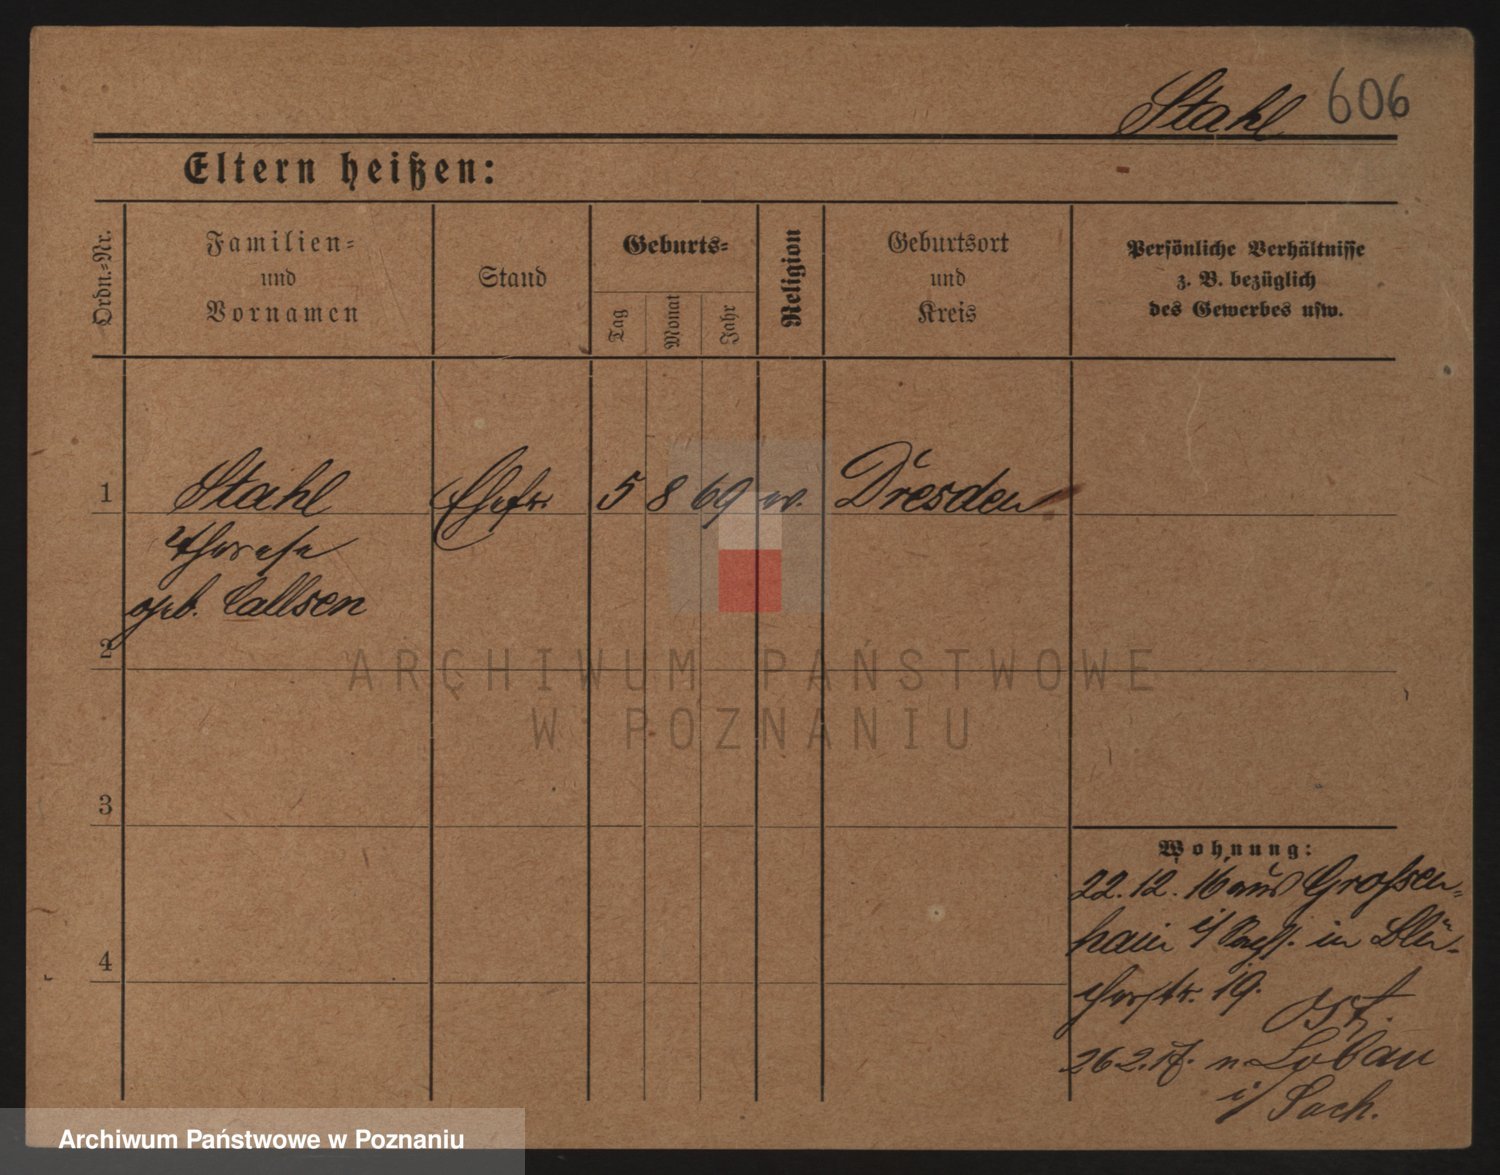 Stahl 606
Eltern heißen:
Ordn.=Nr.
Familien=
und
Vornamen
Stand
Geburts=
Tag
Monat
Jahr
Religion
Geburtsort
und
Kreis
Persönliche Verhältnisse
z. B. bezüglich
des Gewerbes usw.
1 Stahl Ehefr. 5 8 69 w. Dresden
Therese
geb. Callsen
2
3
4
Wohnung:
22.12.16 aus Grossen=
hain i/ in Blü=
cherstr. 19.
26.2.17. n Löbau
i/ Sach.
ARCHIWUM PAŃSTWOWE
W POZNANIU
Archiwum Państwowe w Poznaniu